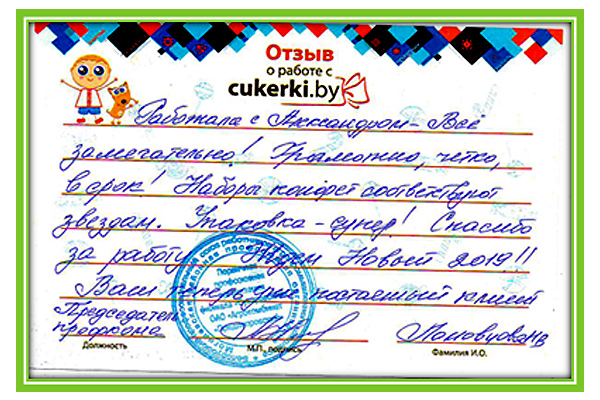 Отзыв
о работе с
cukerki.by
Работала с Александром - Всё
замечательно! Грамотно, чётко,
в срок! Наборы конфет соответствуют
звездам. Упаковка - супер! Спасибо
за работу. Ждем Новый 2019!!
Ваш теперь уже постоянный клиент
Председатель
профкома
Должность
М.П., подпись
Фамилия И.О.